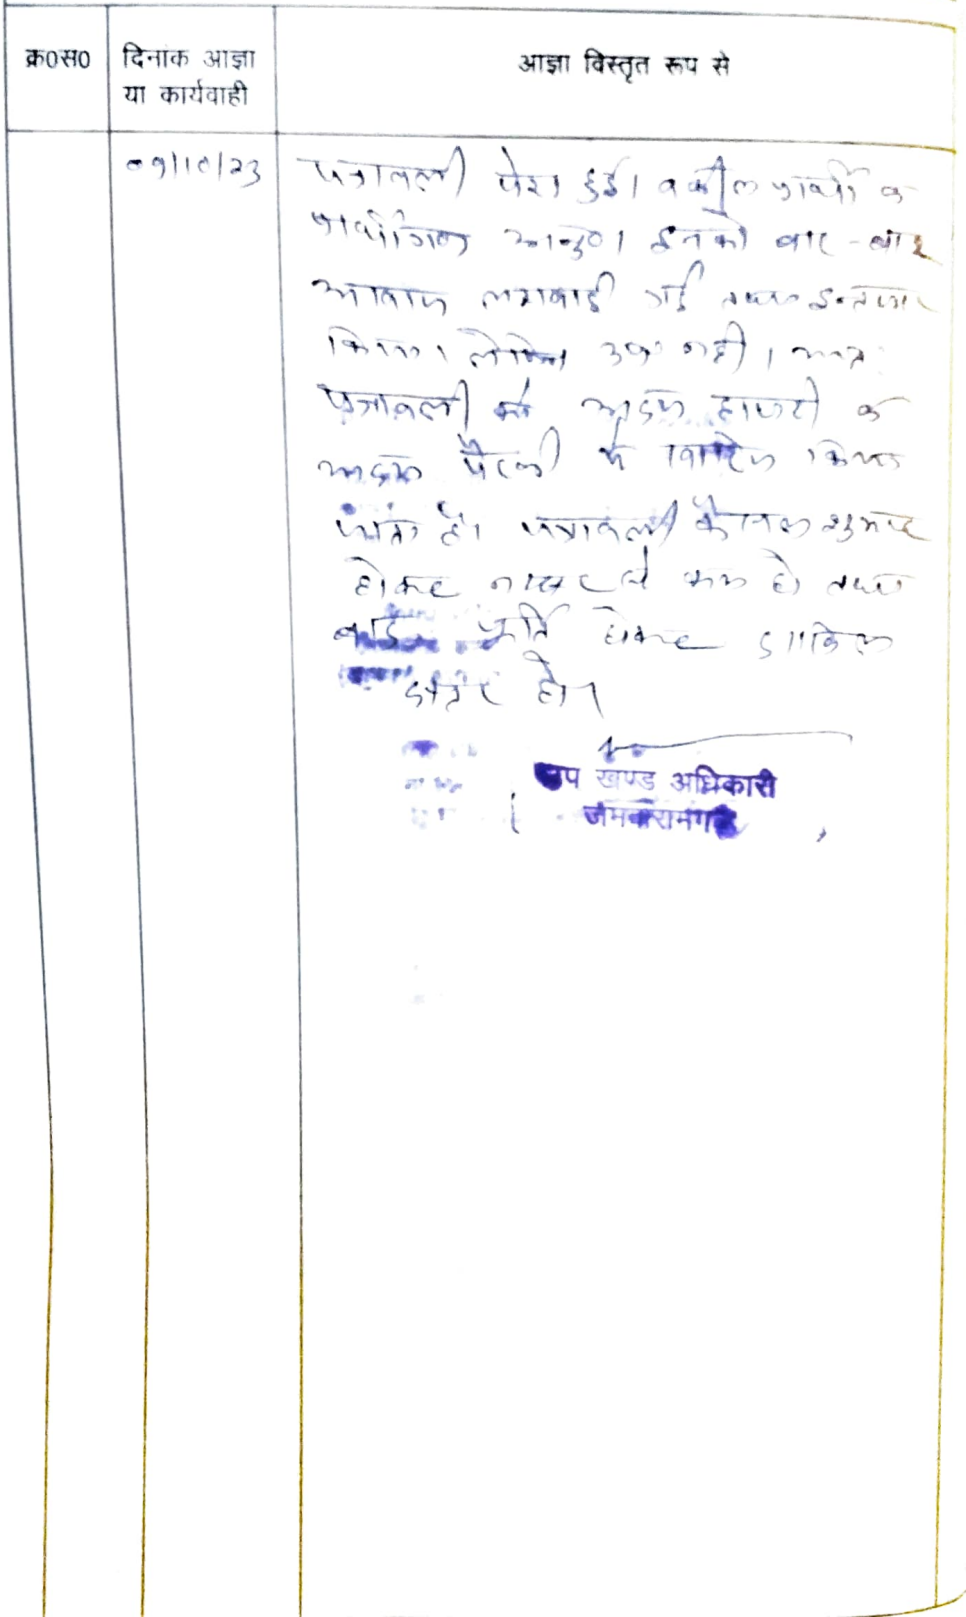 क्र0स0
दिनांक आज्ञा
या कार्यवाही
आज्ञा विस्तृत रूप से
09/10/23
पत्रावली पेश हुई। वकील प्रार्थी व
प्रार्थीगण अनु0। इनको बार-बार
आवाज लगवाई गई तथा इन्तजार
किया। लेकिन उप0 नही। अतः
पत्रावली को अदम हाजरी व
अदम पैरवी में खारिज किया
जाता है। पत्रावली फैसल शुमार
होकर नम्बर से कम हो तथा
बाद पूर्ति होकर दाखिल
दफ्तर हो।
उप खण्ड अधिकारी
जमवारामगढ़